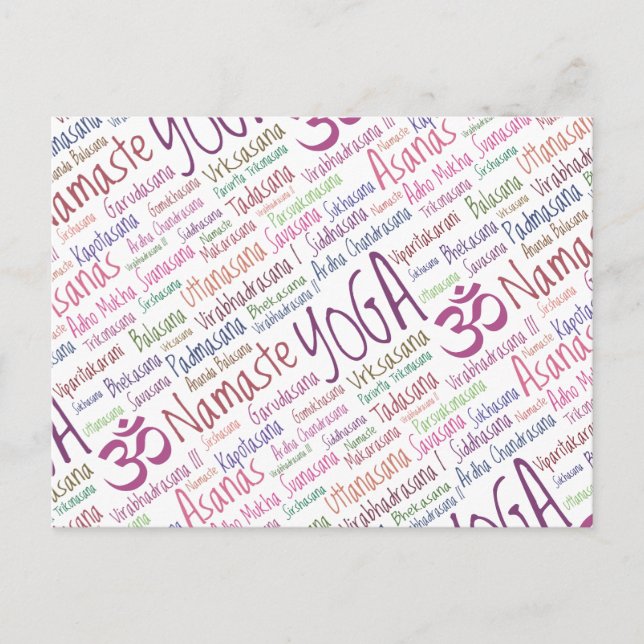 YOGA
Namaste
Padmasana
Ananda Balasana
Sirshasana
Garudasana
Gomukhasana
Vrksasana
Parivrtta Trikonasana
Virabhadrasana III
ॐ
Kapotasana
Ardha Chandrasana
Siddhasana
Namaste
Tadasana
Virabhadrasana II
Parsvakonasana
Sukhasana
Asanas
Namaste
Kapotasana
Virabhadrasana III
Asanas
Adho Mukha Svanasana
Makarasana
Savasana
Siddhasana
Adho Mukha Svanasana
Sirshasana
Trikonasana
Uttanasana
Virabhadrasana I
Virabhadrasana II
Ardha Chandrasana
Viparitakarani
Balasana
Vrksasana
Uttanasana
Virabhadrasana
Viparitakarani
Balasana
Padmasana
Bhekasana
Sukhasana
Bhekasana
Savasana
Padmasana
Ananda Balasana
Sukhasana
Bhekasana
Savasana
Ananda Balasana
Namaste
YOGA
Uttanasana
ॐ
Namaste
YOGA
Uttanasana
ॐ
Namaste
Sirshasana
Garudasana
Gomukhasana
Vrksasana
Parivrtta Trikonasana
Virabhadrasana III
Asanas
Namaste
Kapotasana
Virabhadrasana III
Namaste
Kapotasana
Ardha Chandrasana
Siddhasana
Makarasana
Tadasana
Virabhadrasana II
Parsvakonasana
Savasana
Sukhasana
Siddhasana
Namaste
Adho Mukha
Trikonasana
Asanas
Adho Mukha Svanasana
Sirshasana
Uttanasana
Virabhadrasana I
Virabhadrasana II
Bhekasana
Ardha Chandrasana
Viparitakarani
Sukhasana
Savasana
Uttanasana
YOGA
ॐ